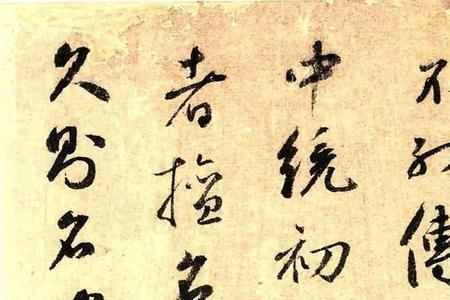 不傳
中統初
者擅名
久則名